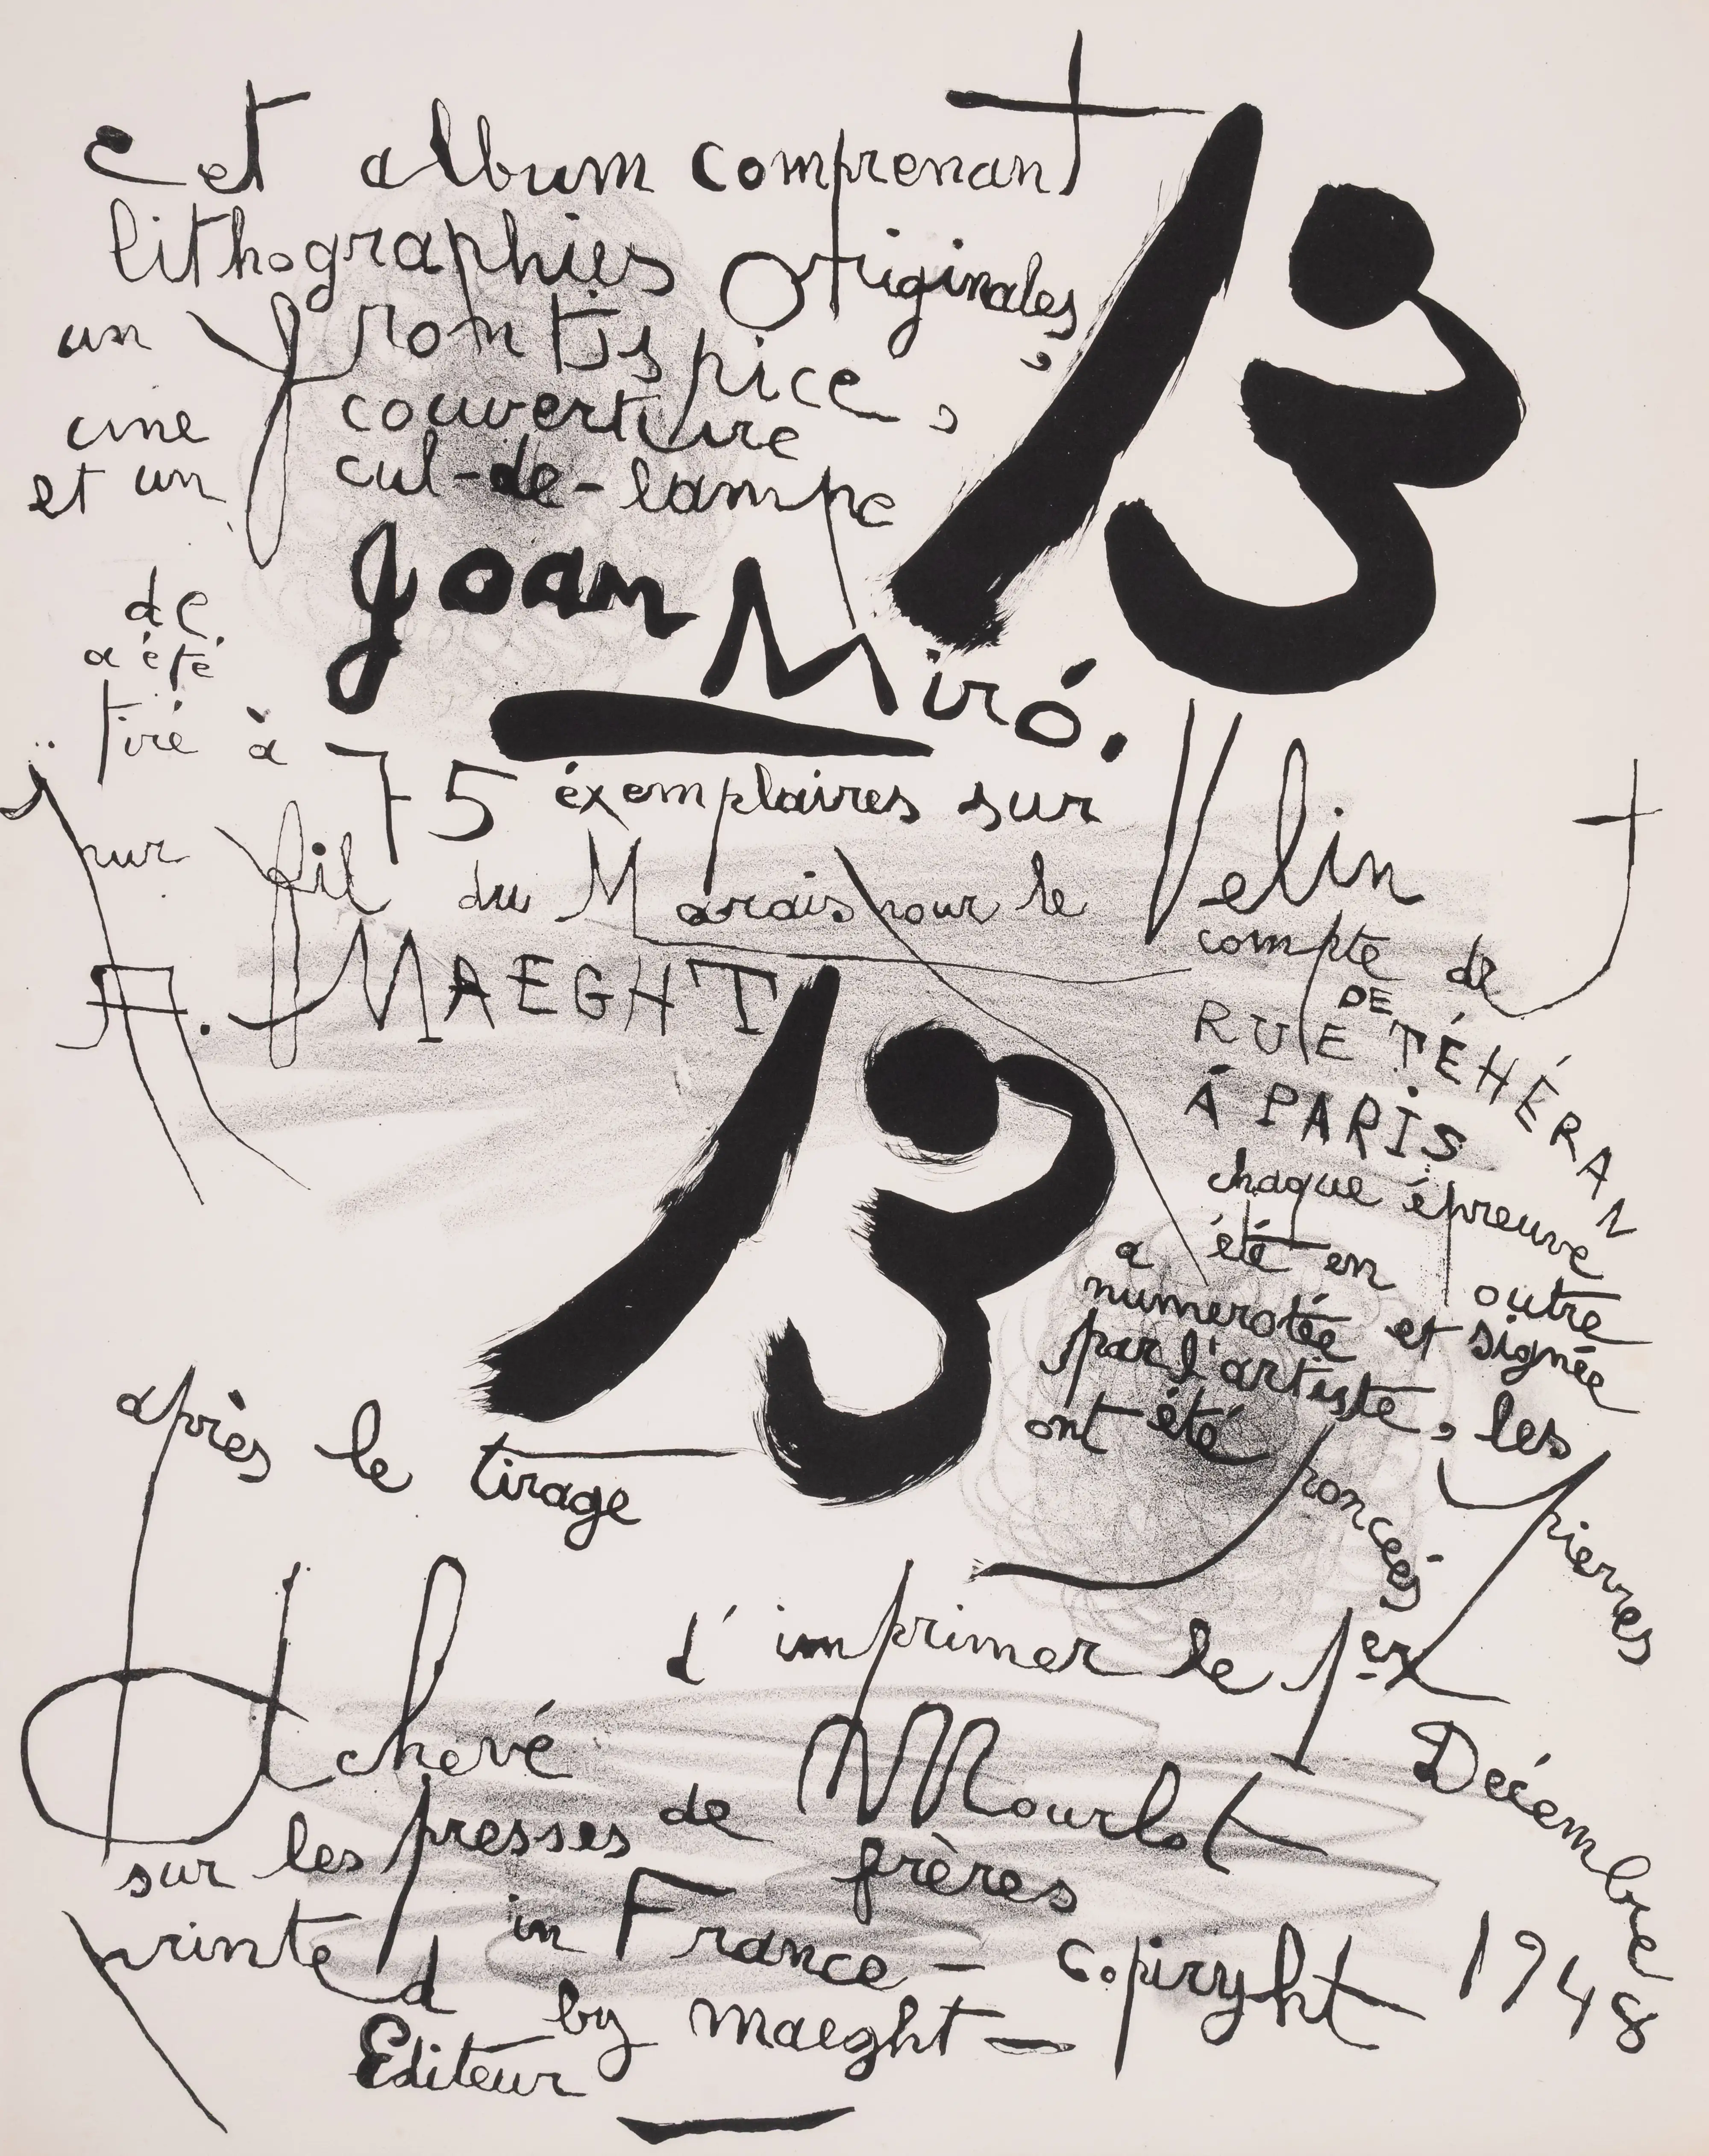 cet album comprenant 13
lithographies originales,
un frontispice,
une couverture
et un cul-de-lampe
de Joan Miró.
a été
tiré à 75 éxemplaires sur Velin
pur fil du Marais pour le compte de
A. MAEGHT 13 RUE DE TÉHÉRAN
Á PARIS
chaque épreuve
a été en outre
numerotée et signée
par l'artiste, les pierres
ont été poncées
après le tirage
Achevé d'imprimer le 1er Décembre 1948
sur les presses de Mourlot
frères
printed in France - copiryht
by maeght -
Editeur